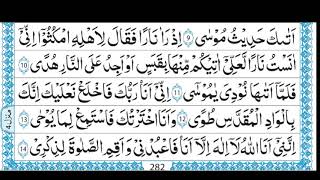 اَتٰىكَ حَدِيْثُ مُوْسٰى ۹ اِذْ رَاٰ نَارًا فَقَالَ لِاَهْلِهِ امْكُثُوْۤا اِنِّىْۤ
اٰنَسْتُ نَارًا لَّعَلِّىْۤ اٰتِيْكُمْ مِّنْهَا بِقَبَسٍ اَوْ اَجِدُ عَلَى النَّارِ هُدًى ۱۰
فَلَمَّاۤ اَتٰىهَا نُوْدِىَ يٰمُوْسٰى ۱۱ اِنِّىْۤ اَنَا رَبُّكَ فَاخْلَعْ نَعْلَيْكَ اِنَّكَ
بِالْوَادِ الْمُقَدَّسِ طُوًى ۱۲ وَاَنَا اخْتَرْتُكَ فَاسْتَمِعْ لِمَا يُوْحٰى ۱۳
اِنَّنِىْۤ اَنَا اللّٰهُ لَاۤ اِلٰهَ اِلَّاۤ اَنَا فَاعْبُدْنِىْ وَاَقِمِ الصَّلٰوةَ لِذِكْرِىْ ۱۴
منزل ۴
282